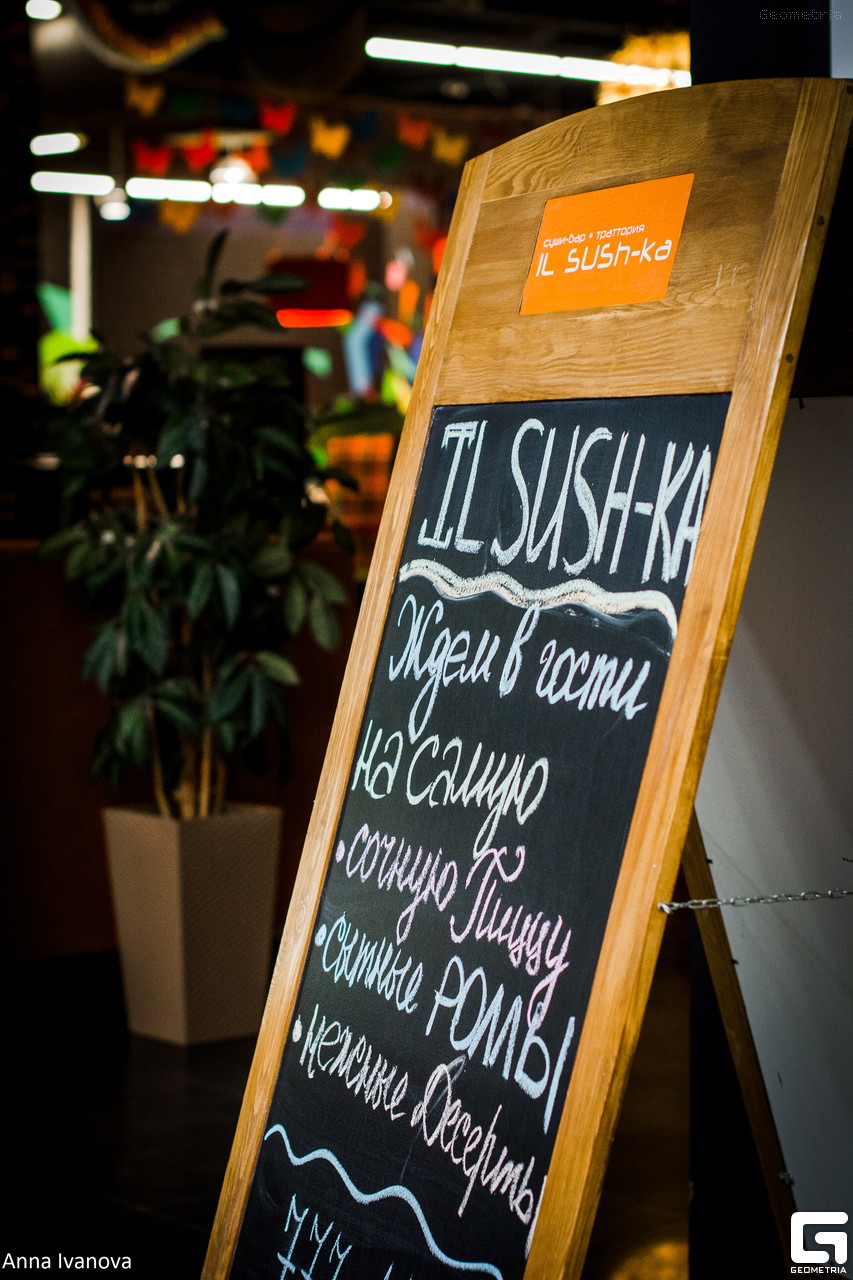 Geometria
суши-бар • траттория
IL SUSh-ka
IL SUSH-KA
Ждем в гости
на самую
• сочную Пиццу
• сытные РОЛЛЫ
• нежные Десерты
777
Anna Ivanova
GEOMETRIA